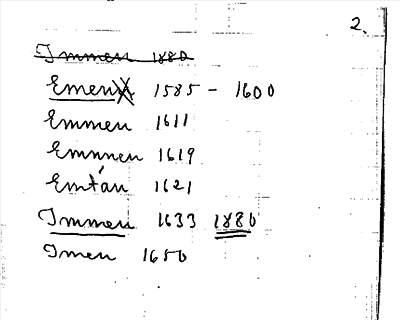 2.
Immen 1880
Emen 1585 - 1600
Emmen 1611
Emmen 1619
Emtán 1621
Immen 1633 1880
Imen 1650